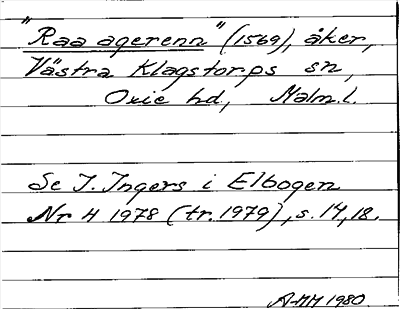 "Raa agerenn" (1569), åker,
Västra Klagstorps sn,
Oxie hd, Malm.l.
Se I. Ingers i Elbogen
Nr 4 1978 (tr. 1979), s. 17, 18.
AMM 1980